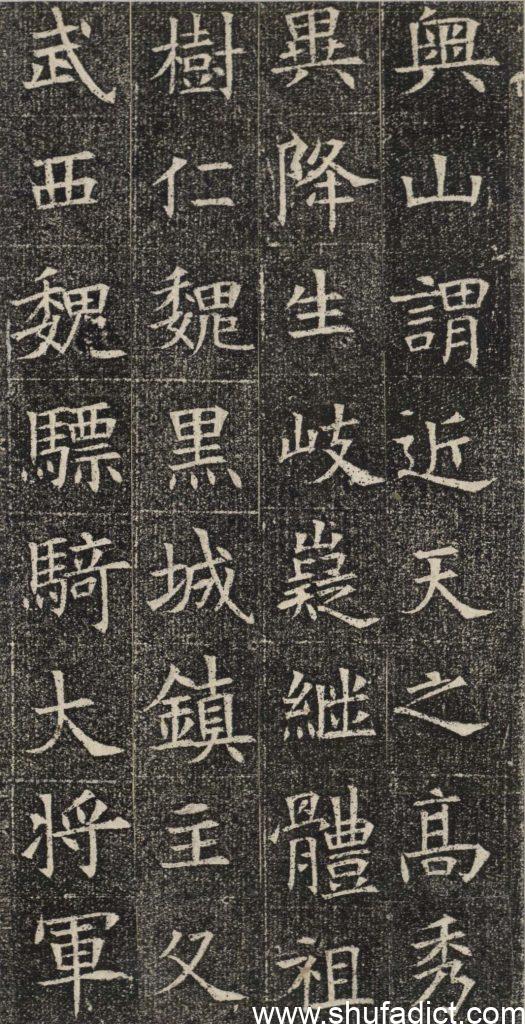 山謂近天之髙秀
異降生岐嶷繼體祖
樹仁魏黒城鎮主父
武西魏驃騎大将軍
www.shufadict.com